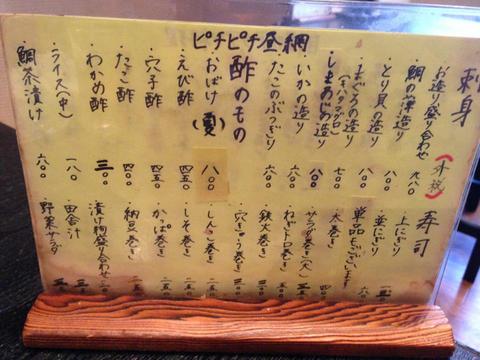 ピチピチ昼網
刺身
(外税)
お造り盛り合わせ 九八〇
鯛の薄造り 八〇〇
とり貝の造り 八〇〇
まぐろの造り 八〇〇
(キハダマグロ)
しまあじの造り 七〇〇
いかの造り 八〇〇
たこのぶつぎり 六〇〇
酢のもの
おばけ(夏) 八〇〇
えび酢 四五〇
穴子酢 四五〇
たこ酢 四〇〇
わかめ酢 三〇〇
ライス(中) 一八〇
鯛茶漬け 六〇〇
寿司
上にぎり
並にぎり
単品もございます
太巻き
サラダ巻き(大)
ねぎトロ巻き
鉄火巻き
穴きゅう巻き
しんこ巻き
しそ巻き
かっぱ巻き
納豆巻き
漬け物盛り合わせ
田舎汁
野菜サラダ